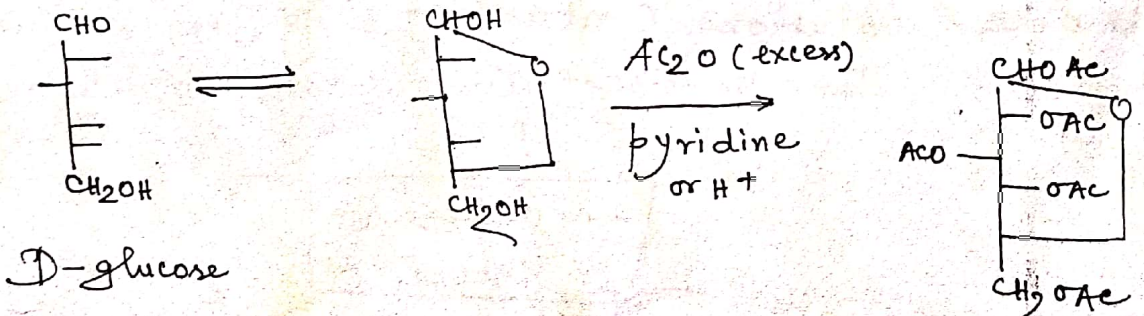 CHO
CH2OH
D-glucose
CHOH
O
CH2OH
Ac2O (excess)
pyridine
or H+
CHOAc
O
OAC
ACO
OAC
CH2OAc